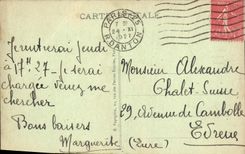 CARTE POSTALE
PARIS-25
R. DANTON
J'arriverai jeudi
à 17h 27 - je serai
chargée venez me
chercher
Bons baisers
Marguerite
Monsieur Alexandre
Chalet-Suisse
39, Avenue de Cambolle
Evreux
(Eure)